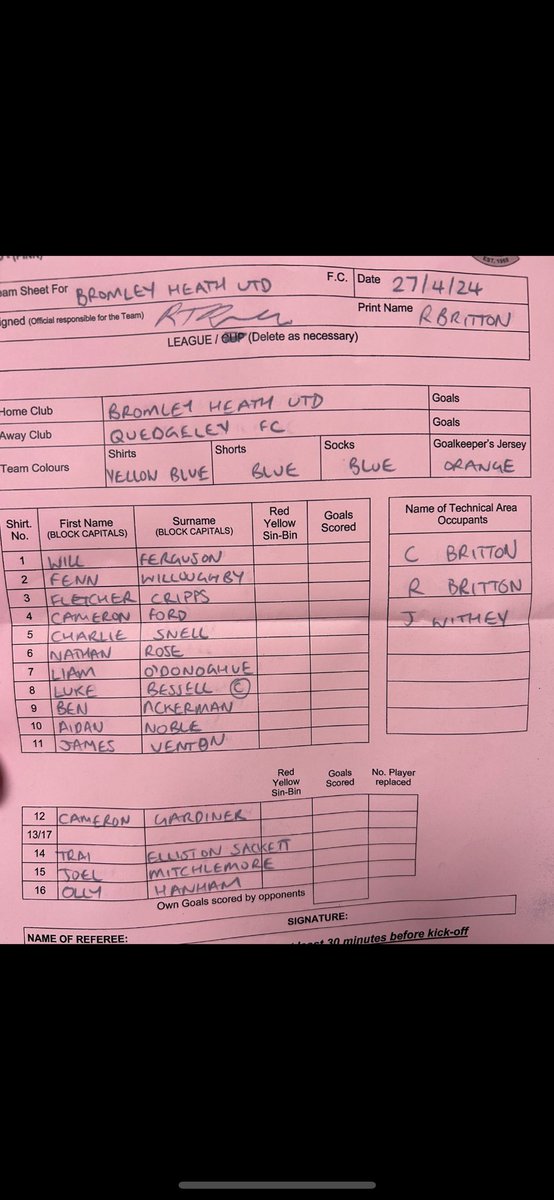 EST. 1968
eam Sheet For BROMLEY HEATH UTD F.C. Date 27/4/24
igned (Official responsible for the Team) Print Name R BRITTON
LEAGUE / CUP (Delete as necessary)
Home Club BROMLEY HEATH UTD Goals
Away Club QUEDGELEY FC Goals
Team Colours Shirts YELLOW BLUE Shorts BLUE Socks BLUE Goalkeeper's Jersey ORANGE
Shirt. No. First Name (BLOCK CAPITALS) Surname (BLOCK CAPITALS) Red Yellow Sin-Bin Goals Scored
1 WILL FERGUSON
2 FENN WILLOUGHBY
3 FLETCHER CRIPPS
4 CAMERON FORD
5 CHARLIE SNELL
6 NATHAN ROSE
7 LIAM O'DONOGHUE
8 LUKE BESSELL C
9 BEN ACKERMAN
10 AIDAN NOBLE
11 JAMES VENTON
Name of Technical Area Occupants
C BRITTON
R BRITTON
J WITHEY
Red Yellow Sin-Bin Goals Scored No. Player replaced
12 CAMERON GARDINER
13/17
14 TRAI ELLISTON SACKETT
15 JOEL MITCHLEMORE
16 OLLY HANHAM
Own Goals scored by opponents
NAME OF REFEREE: SIGNATURE:
least 30 minutes before kick-off